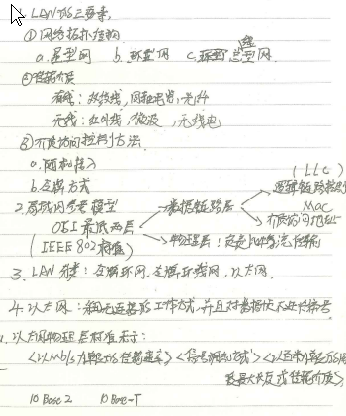 1. LAN的三要素:
①网络拓扑结构
a.星型网 b.环型网 c. 总型网
②传输介质
有线:双绞线,同轴电缆,光纤
无线:红外线,微波,无线电
③介质访问控制方法
a.随机接入
b.令牌方式
2.局域网参考模型
OSI最低两层
(IEEE 802标准)
数据链路层
(LLC)
逻辑链路控制
MAC
介质访问
物理层:
3. LAN分类:令牌环网.令牌总线网.以太网.
4.以太网:无连接的工作方式,并且对数据帧不
以太网物理层标准表示:
<以mb/s为单位的传输速率><信号调制方式><以
10 Base 2 10 Base-T